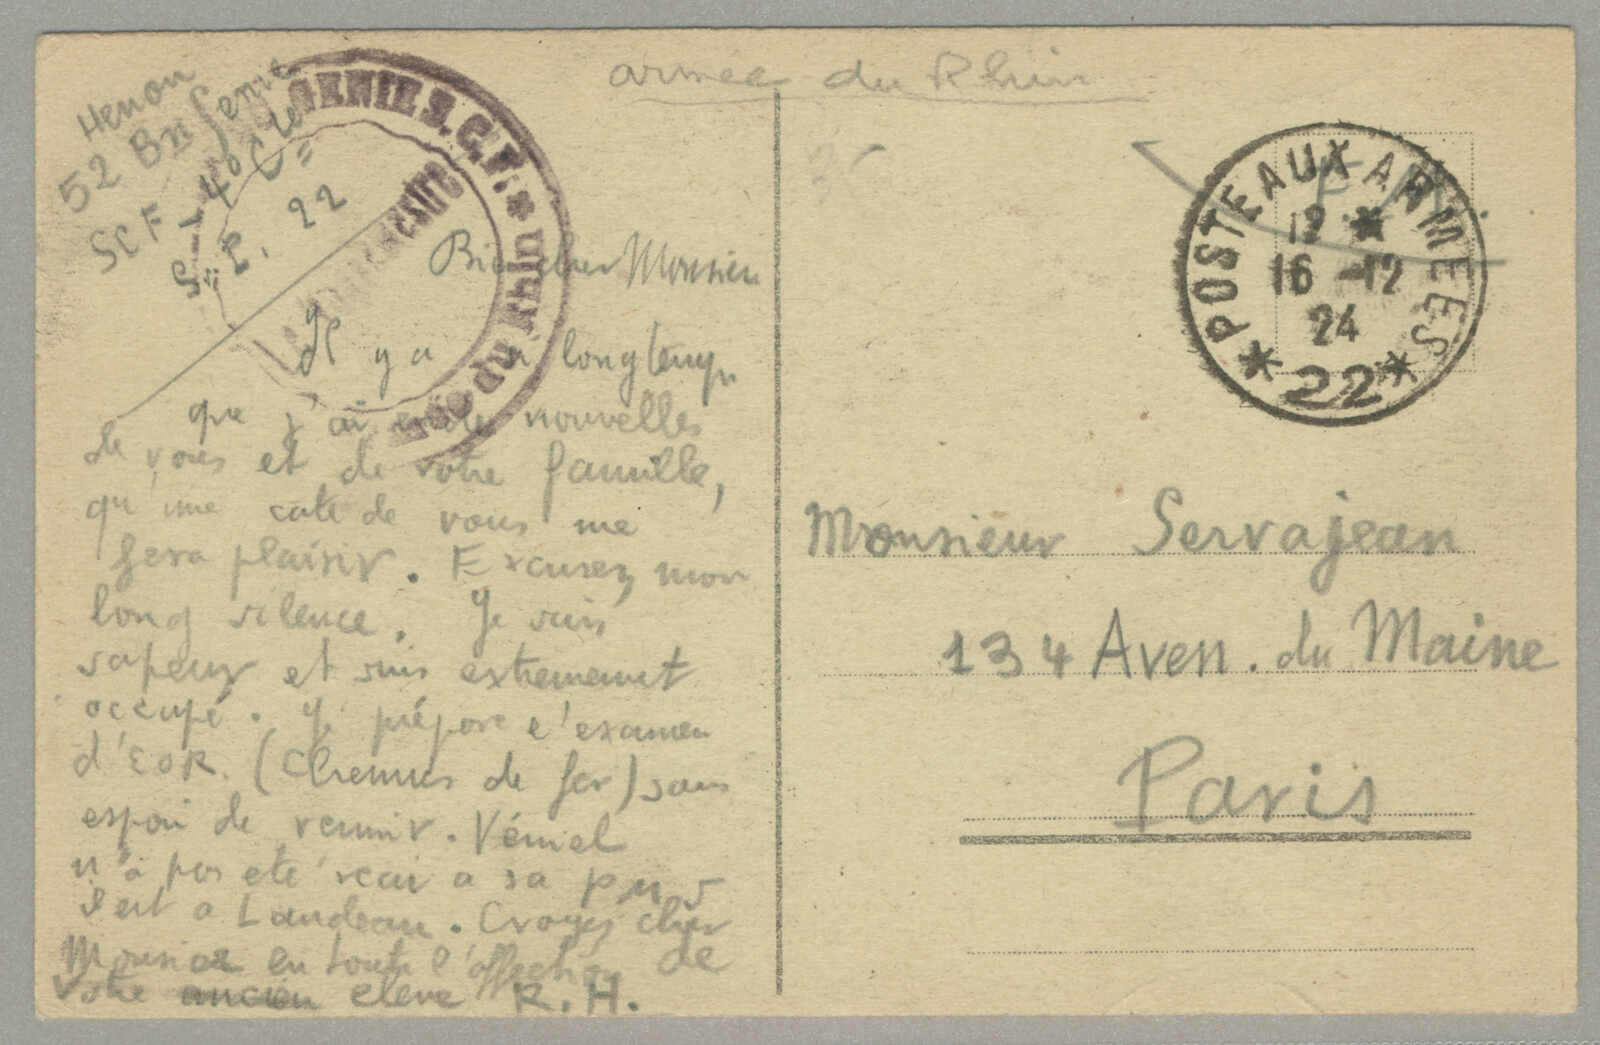 armée du Rhin
Henon
52 Bn Genie
SCF 4° Cie
S.P. 22
GENIE S.C.F. * Rhin
du Rhin
POSTE AUX ARMEES
12 *
16 -12
24
* 22 *
F M
Bien cher Monsieur
Il y a longtemps
que j'ai nouvelles
de vous et de votre famille,
qu'une carte de vous me
fera plaisir. Excusez mon
long silence. Je suis
sapeur et suis extremement
occupé. Je prépare l'examen
d'EOR. (Chemins de fer) sans
espoir de reunir. Véniel
n'a pas eté recu a sa PMS
il est a Landeau. Croyez cher
Monsieur en toute l'affection de
votre ancien eleve R.H.
Monsieur Servajean
134 Aven. du Maine
Paris